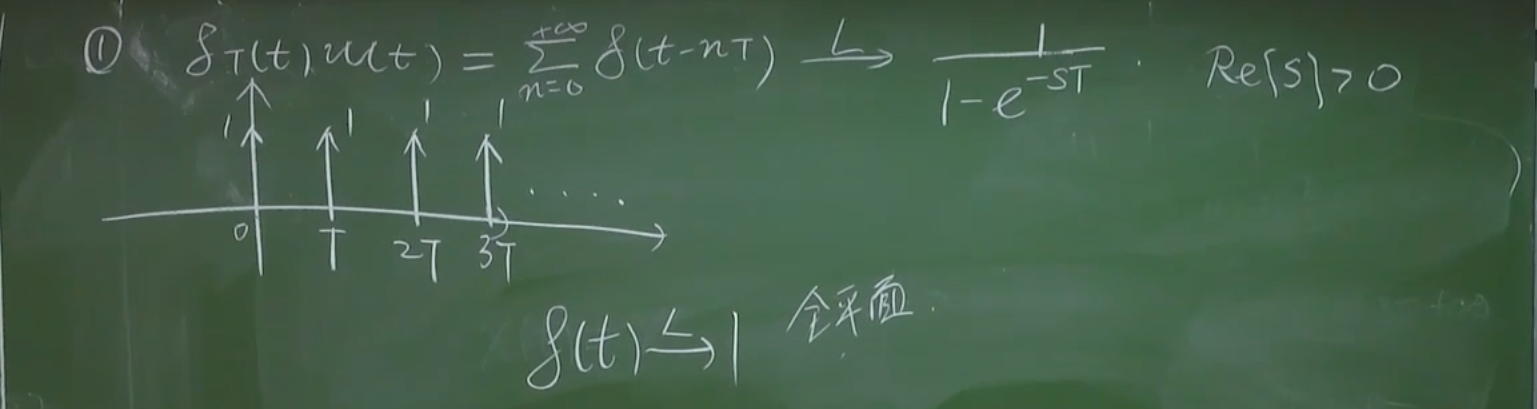 ① δT(t)u(t) = ∑_{n=0}^{+∞} δ(t-nT) —L→ 1/(1-e^{-sT}) . Re[s]>0
1 1 1 1 ....
0 T 2T 3T
δ(t) —L→ 1 全平面.